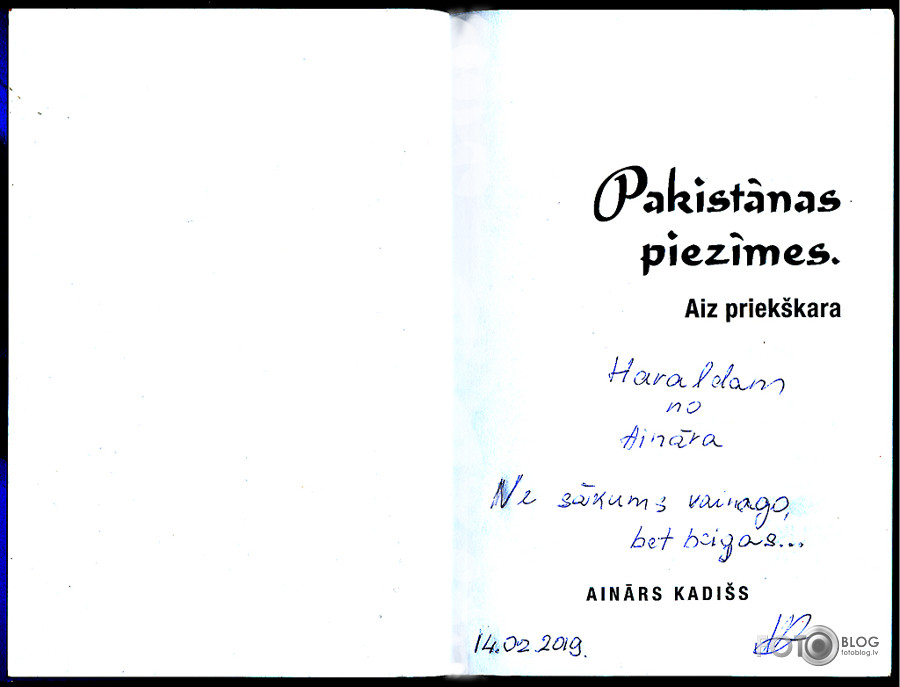 Pakistānas
piezīmes.
Aiz priekškara
Haraldam
no
Aināra
Ne sākums vainago,
bet beigas...
AINĀRS KADIŠS
14.02.2019.
FOTO BLOG
fotoblog.lv